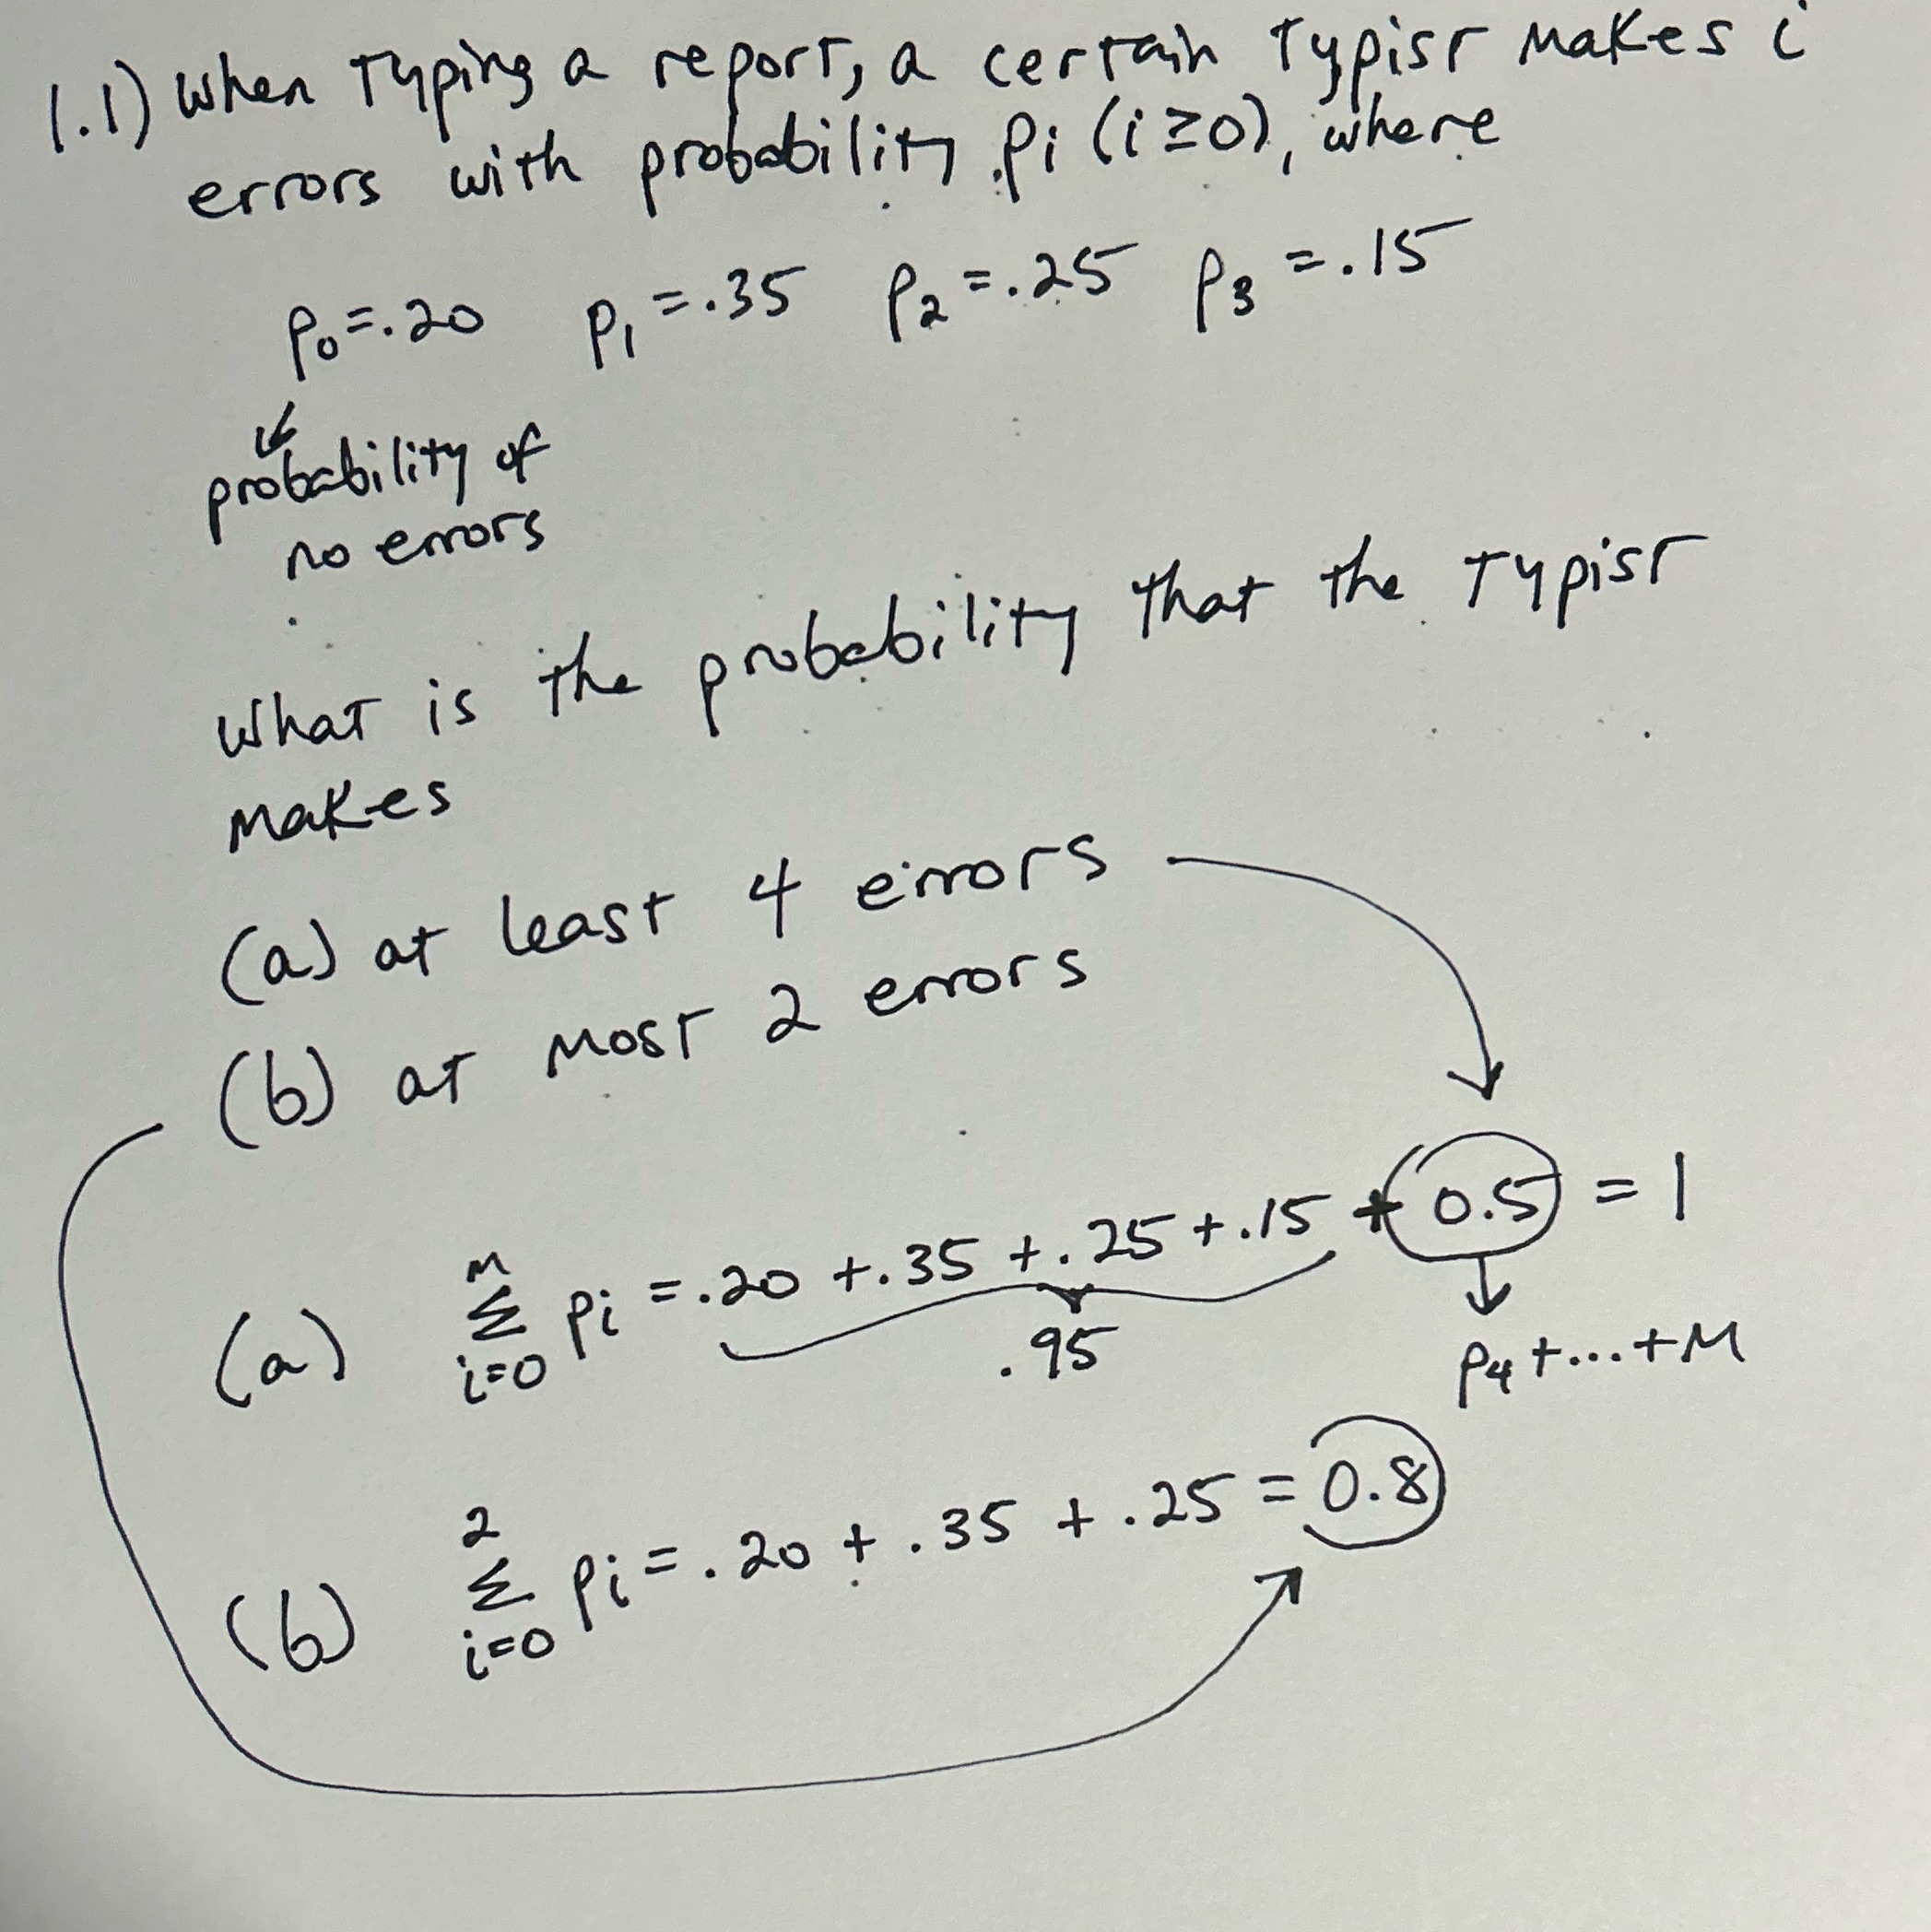 1.1) When Typing a report, a certain Typist makes i
errors with probability pi (i≥0), where
p0=.20 p1=.35 p2=.25 p3=.15
probability of
no errors
What is the probability that the Typist
makes
(a) at least 4 errors
(b) at most 2 errors
(a) M Σ i=0 pi =.20 +.35 +.25 +.15 + 0.5 = 1
.95
p4+...+M
(b) 2 Σ i=0 pi =.20 + .35 + .25 = 0.8